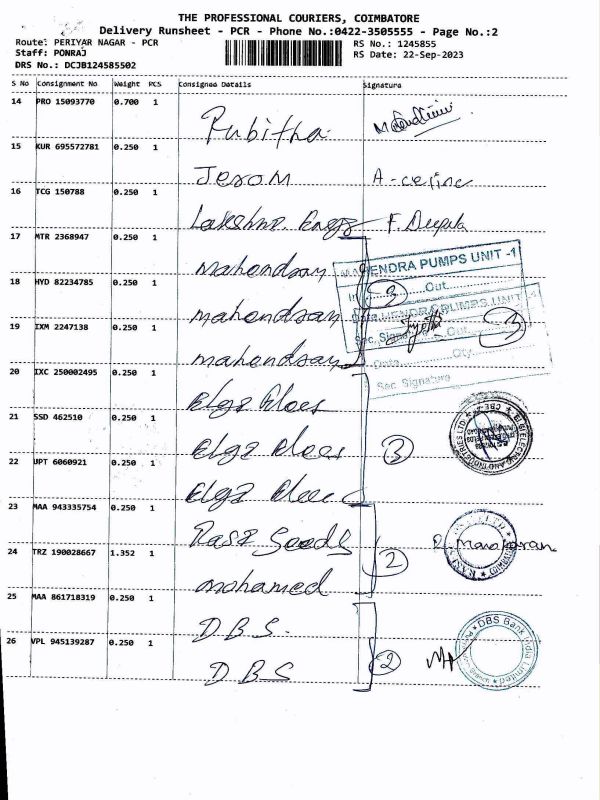 THE PROFESSIONAL COURIERS, COIMBATORE
Delivery Runsheet - PCR - Phone No.:0422-3505555 - Page No.:2
Route: PERIYAR NAGAR - PCR
Staff: PONRAJ
DRS No.: DCJB124585502
RS No.: 1245855
RS Date: 22-Sep-2023
S No Consignment No Weight PCS Consignee Details Signature
14 PRO 15093770 0.700 1
Pubitha
15 KUR 695572781 0.250 1
Jerom A-celine
16 TCG 150788 0.250 1
Lakshmi Engg F. Deepak
17 MTR 2368947 0.250 1
Mahendran
MAHENDRA PUMPS UNIT -1
Out
18 HYD 82234785 0.250 1
3
mahendran
MAHENDRA PUMPS UNIT -1
Sec. Signature Out
3
19 IXM 2247138 0.250 1
mahendran
Date City
Sec Signature
20 IXC 250002495 0.250 1
Elgi Elecs
21 SSD 462510 0.250 1
Elgi Elecs 3
22 UPT 6060921 0.250 1
Elgi Elecs
23 MAA 943335754 0.250 1
Rasi Seeds R. Manokaran
24 TRZ 190028667 1.352 1
2
mohamed
25 MAA 861718319 0.250 1
D.B.S.
DBS Bank India Limited
26 VPL 945139287 0.250 1
2
D B S